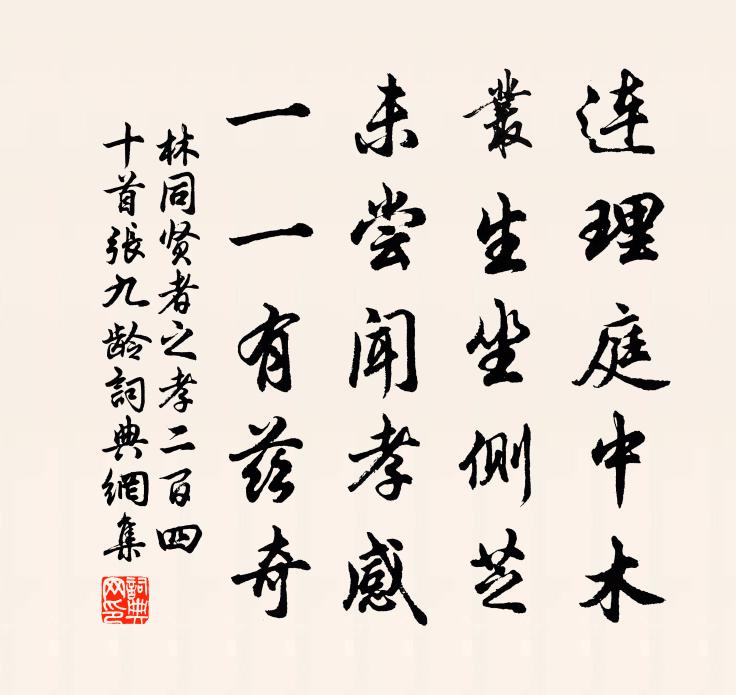 连理庭中木
丛生坐侧芝
未尝闻孝感
一一有兹奇
林同贤者之孝二百四
十首张九龄詞典網集
詞典
网印